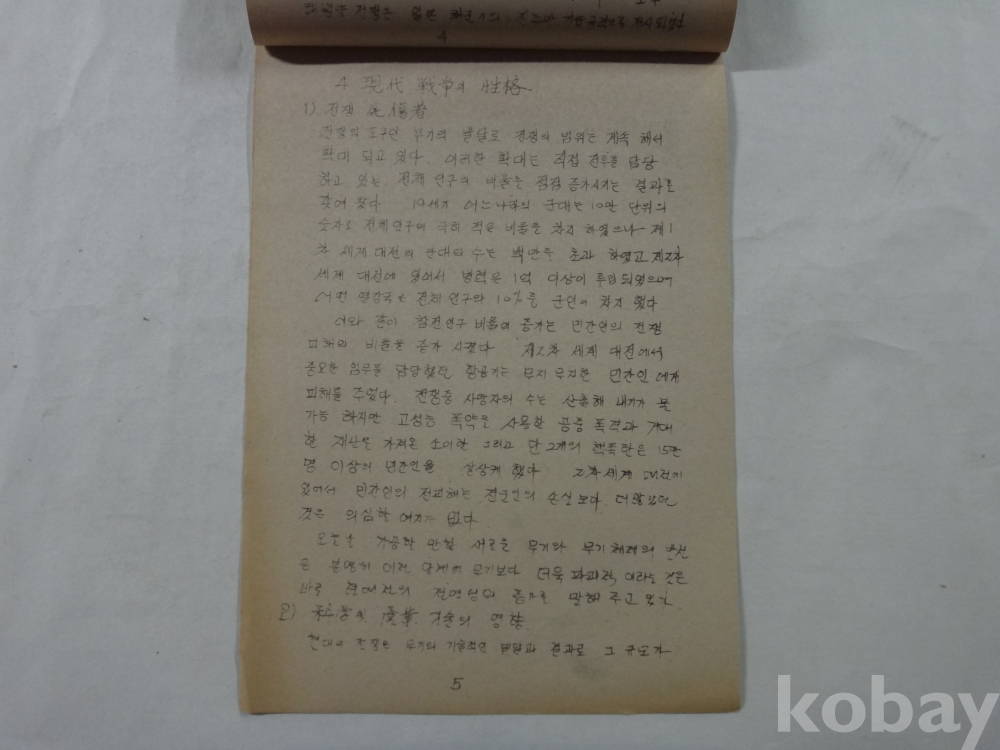 4
4 現代 戦争의 性格
1) 전쟁 死傷者
전쟁의 도구인 무기의 발달로 전쟁의 범위는 계속 해서
확대 되고 있다. 이러한 확대는 직접 전투를 담당
하고 있는 전체 인구의 비율을 점점 증가시키는 결과를
19세기 어느나라의 군대는 10만 단위의
숫자로 전체인구에 극히 적은 비율을 차지 하였으나 제1
차 세계 대전의 군대의 수는 백만을 초과 하였고 제2차
세계 대전에 있어서 병력은 1억 이상이 투입되었으며
어떤 열강국은 전체 인구의 10%를 군인이 차지 했다
이와 같이 참전인구 비율의 증가는 민간인의 전쟁
피해의 비율을 증가 시켰다 제2차 세계 대전에서
중요한 임무를 담당했던 항공기는 무지 무지한 민간인 에게
피해를 주었다. 전쟁중 사망자의 수는 산출해 내기가 불
가능 하지만 고성능 폭약을 사용한 공중 폭격과 거대
한 재산을 가져온 소이탄 그리고 단 2개의 핵폭탄은 15만
명 이상의 민간인을 살상케 했다 2차 세계 대전에
있어서 민간인의 전피해는 전군인의 손실보다 더 많았던
것은 의심할 여지가 없다
오늘날 가공할 만한 새로운 무기와 무기체계의
은 분명히 이전 단계의 무기보다 더욱 파괴적 이라는 것은
바로 말해 주고 있다
2) 기술의 영향
현대의 전쟁은 무기의 기술적인 발달과 결과로 그 규모가
5
kobay